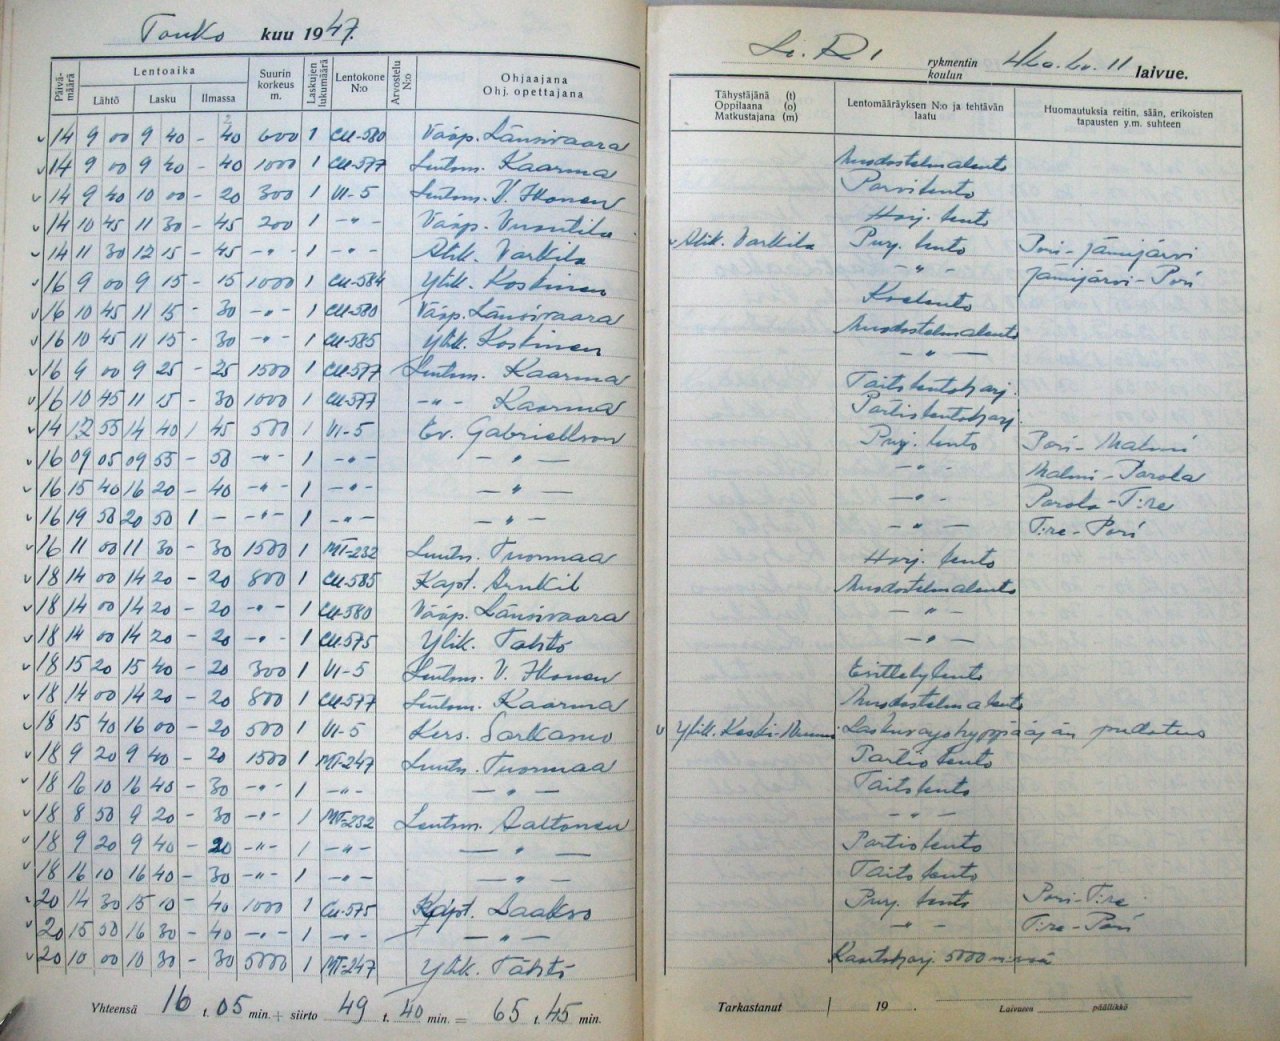 Touko kuu 1947.
Päivä-määrä Lentoaika Suurin korkeus m. Laskujen lukumäärä Lentokone N:o Arvostelu N:o Ohjaajana Ohj. opettajana
Lähtö Lasku Ilmassa
Le. R 1 rykmentin koulun laivue.
Tähystäjänä (t) Oppilaana (o) Matkustajana (m) Lentomääräyksen N:o ja tehtävän laatu Huomautuksia reitin, sään, erikoisten tapausten y.m. suhteen
v 14 9 00 9 40 - 40 600 1 CU-580 Vääp. Länsivaara Muodostelmalento
v 14 9 00 9 40 - 40 1000 1 CU-577 Luutn. Kaarma Parvilento
v 14 9 40 10 00 - 20 300 1 VI-5 Luutn. V. Ikonen Harj. lento
v 14 10 45 11 30 - 45 200 1 -"- Vääp. Vuontila v Alik. Varkila Purj. lento Pori-Jämijärvi
v 14 11 30 12 15 - 45 -"- 1 -"- Alik. Varkila -"- Jämijärvi-Pori
v 16 9 00 9 15 - 15 1000 1 CU-584 Ylik. Koskinen Koelento
v 16 10 45 11 15 - 30 -"- 1 CU-580 Vääp. Länsivaara Muodostelmalento
v 16 10 45 11 15 - 30 -"- 1 CU-585 Ylik. Koskinen -"-
v 16 9 00 9 25 - 25 1500 1 CU-577 Luutn. Kaarma Taitolentoharj.
v 16 10 45 11 15 - 30 1000 1 CU-577 -"- Kaarma Partiolentoharj.
v 14 12 55 14 40 1 45 500 1 VI-5 Ev. Gabrielsson Purj. lento Pori-Malmi
v 16 09 05 09 55 - 50 -"- 1 -"- -"- -"- Malmi-Parola
v 16 15 40 16 20 - 40 -"- 1 -"- -"- -"- Parola-T:re
v 16 19 50 20 50 1 - -"- 1 -"- -"- -"- T:re-Pori
v 16 11 00 11 30 - 30 1500 1 MT-232 Luutn. Tuormaa Harj. lento
v 18 14 00 14 20 - 20 800 1 CU-585 Kapt. Muodostelmalento
v 18 14 00 14 20 - 20 -"- 1 CU-580 Vääp. Länsivaara -"-
v 18 14 00 14 20 - 20 -"- 1 CU-575 Ylik. Tähtö -"-
v 18 15 20 15 40 - 20 300 1 VI-5 Luutn. V. Ikonen Esittelylento
v 18 14 00 14 20 - 20 800 1 CU-577 Luutn. Kaarma Muodostelmalento
v 18 15 40 16 00 - 20 500 1 VI-5 Kers. Sarkamo v Ylik. Keski-Nummi Laskuvarjohyppääjän pudotus
v 18 9 20 9 40 - 20 1500 1 MT-247 Luutn. Tuormaa Partiolento
v 18 16 10 16 40 - 30 -"- 1 -"- -"- Taitolento
v 18 8 50 9 20 - 30 -"- 1 MT-232 Luutn. Aaltonen -"-
v 18 9 20 9 40 - 20 -"- 1 -"- -"- Partiolento
v 18 16 10 16 40 - 30 -"- 1 -"- -"- Taitolento
v 20 14 30 15 10 - 40 1000 1 CU-575 Kapt. Laakso Purj. lento Pori-T:re
v 20 15 50 16 30 - 40 -"- 1 -"- -"- -"- T:re-Pori
v 20 10 00 10 30 - 30 5000 1 MT-247 Ylik. Tähtö Kaartoharj. 5000 m:ssä
Yhteensä 16 t. 05 min. + siirto 49 t. 40 min. = 65 t. 45 min.
Tarkastanut / 19 . Laivueen päällikkö